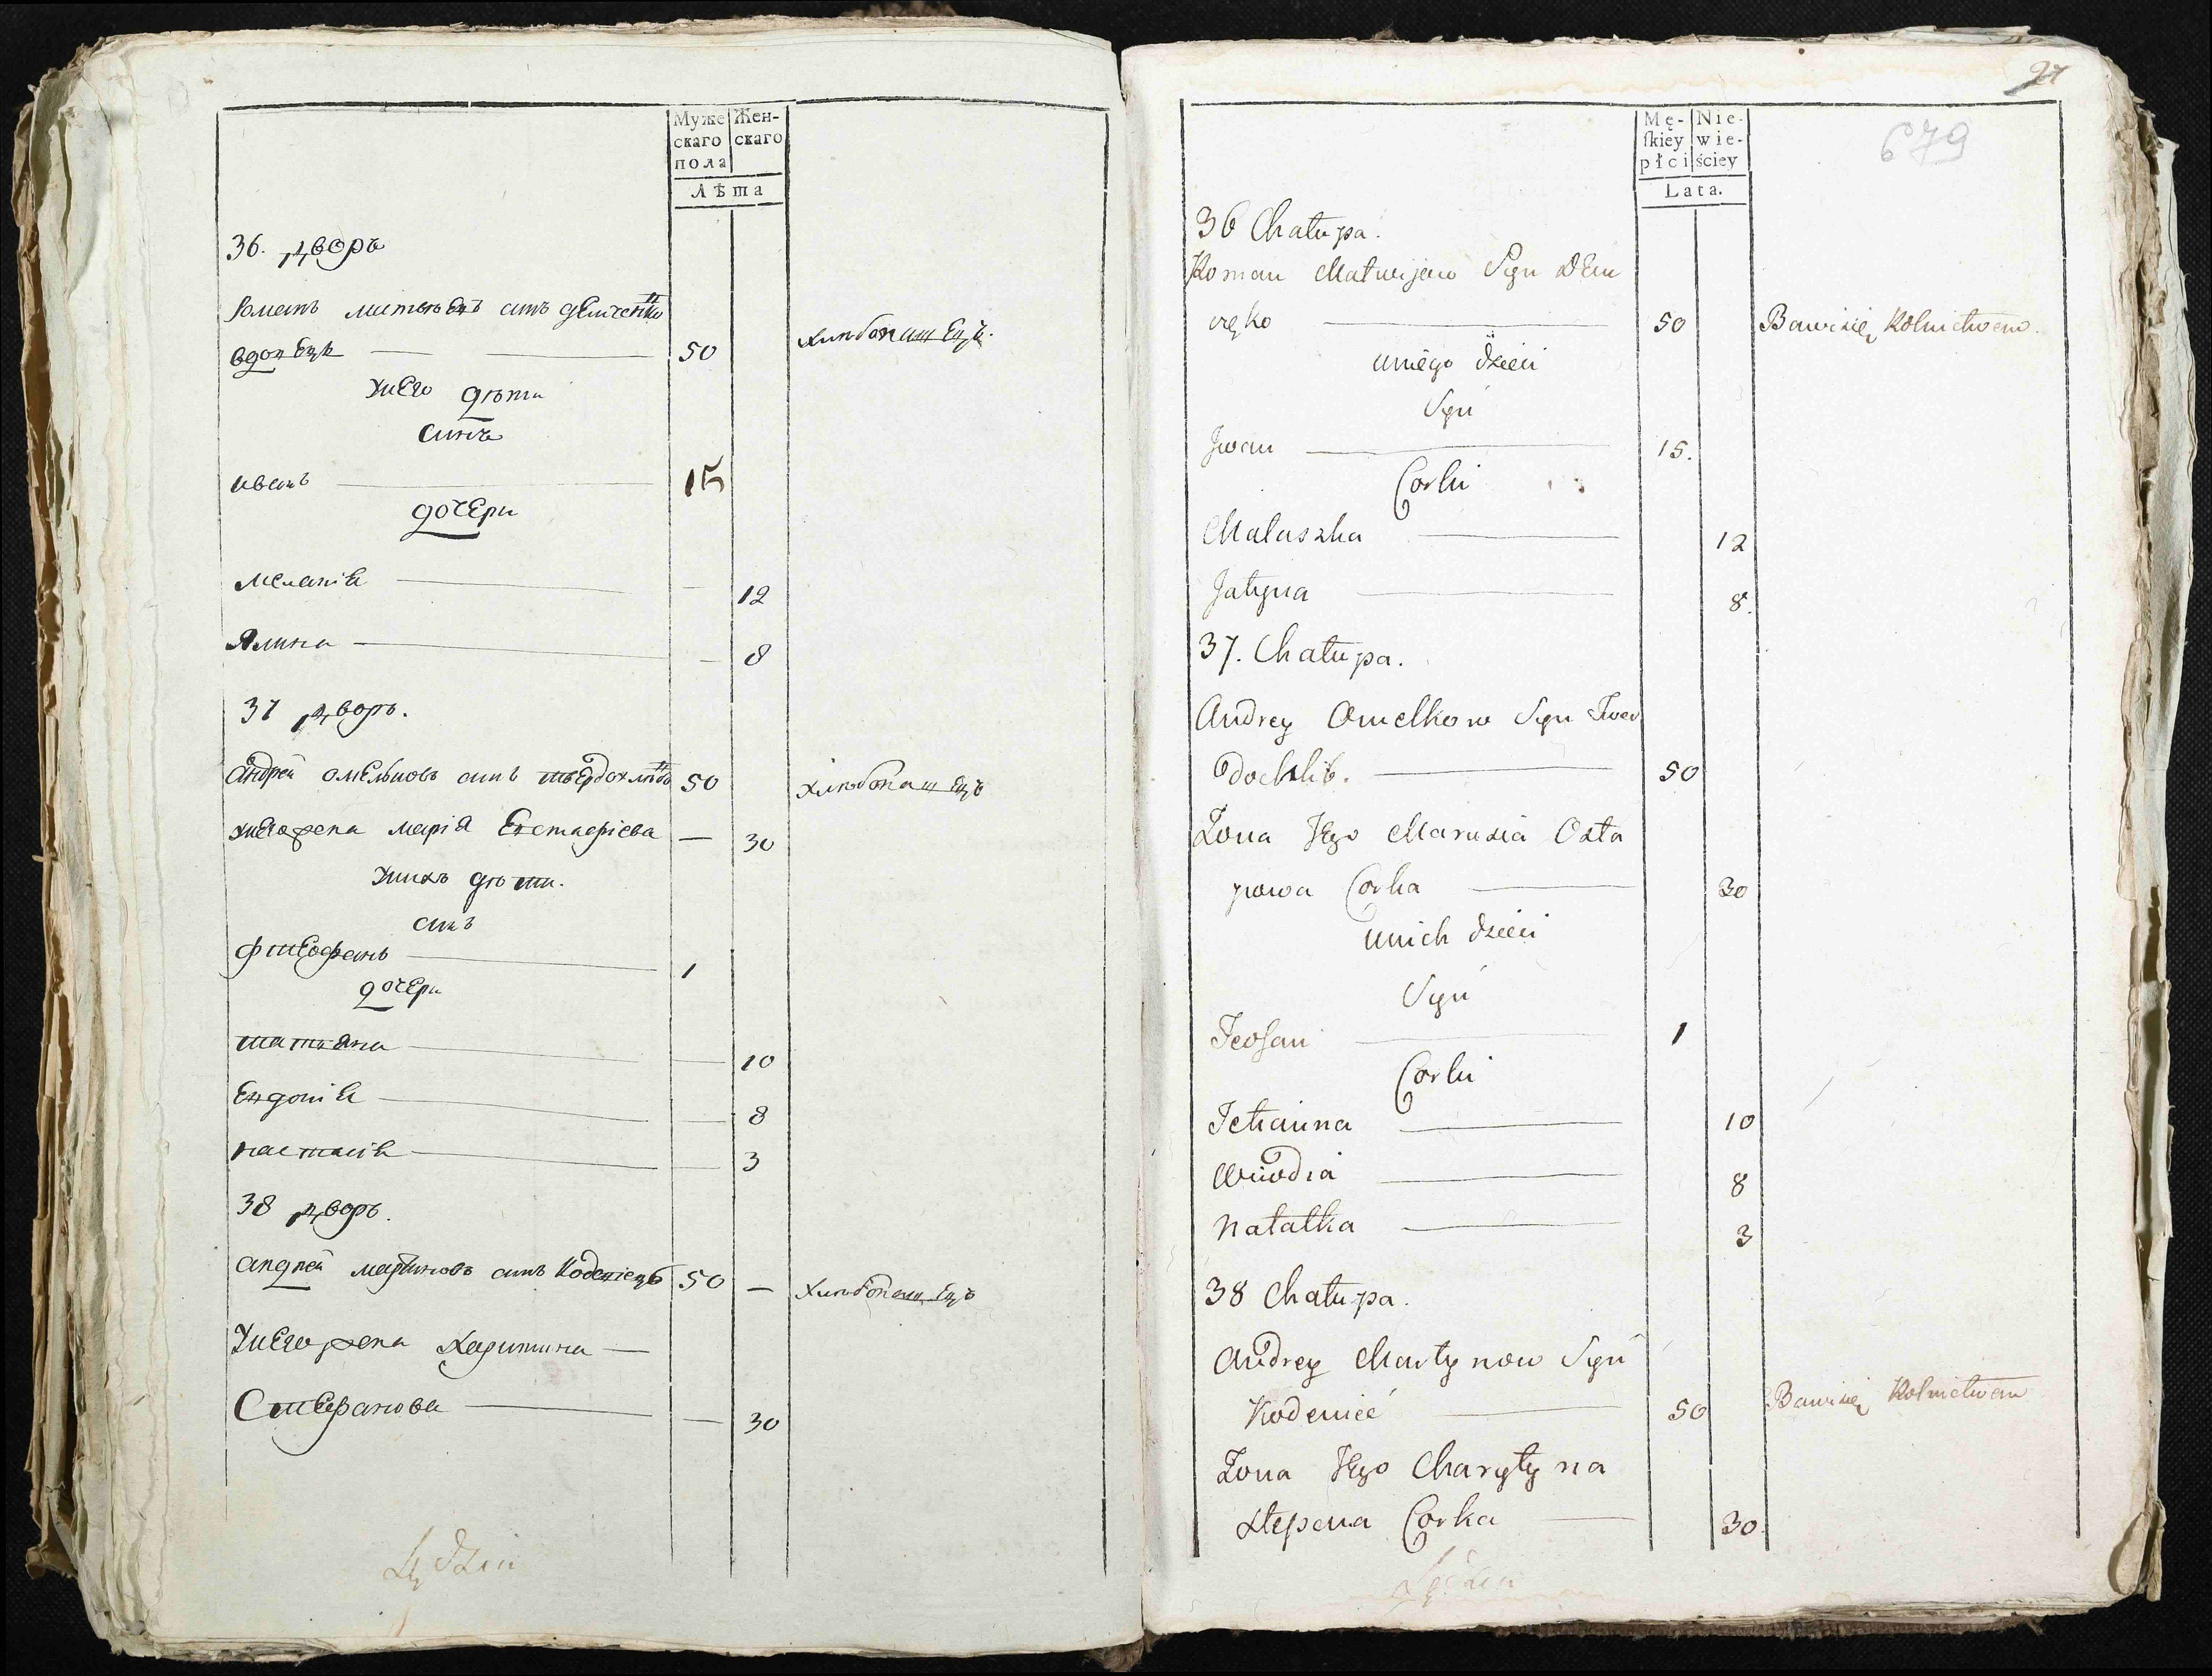 Муже
скаго
пола
Жен-
скаго
Лѣта
36. дворъ
Романъ матвѣевъ синъ демченко
вдовецъ 50 хлѣбопашецъ.
унего дѣти
синъ
иванъ 15
дочери
меланія 12
Ялина 8
37 дворъ.
андрей омельновъ синъ твердохлѣбъ 50 хлѣбопашецъ
унегожена марія Евстафіева — 30
унихъ дѣти.
синъ
фтеофанъ 1
дочери
татьяна 10
Евдокія 8
настасія 3
38 дворъ.
андрей мартиновъ синъ Коденецъ 50 — хлѣбопашецъ
унегожена харитина —
Стефанова — 30
27
679
Mę-
skiey
płci
Nie-
wie-
ściey
Lata.
36 Chałupa.
Roman Matwijew Syn Dem
częko 50 Bawisię Rolnictwem.
uniego dzieci
Syn
Jwan 15.
Corki
Małaszka 12
Jałyna 8.
37. Chałupa.
Andrey Omelkow Syn Twer
dochlib. 50
Zona Jego Marusia Osta
powa Corka 30
unich dzieci
Syn
Teofan 1
Corki
Tetianna 10
Wiwdia 8
Natalka 3
38 Chałupa.
Andrey Martynow Syn
Kodenieć 50 Bawisię Rolnictwem
Zona Jego Charytyna
Stepena Corka 30.